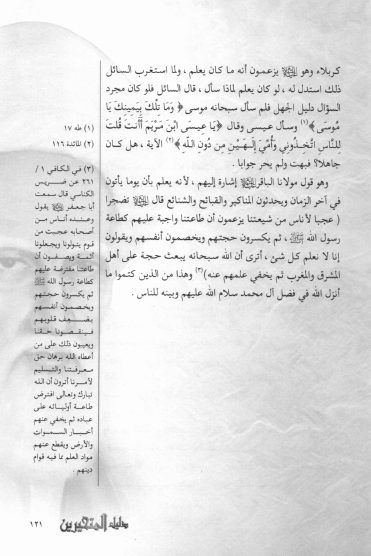 كربلاء وهو ﷺ يزعمون أنه ما كان يعلم ، ولما استغرب السائل
ذلك استدل له ، لو كان يعلم لماذا سأل ، قال السائل فلو كان مجرد
السؤال دليل الجهل فلم سأل سبحانه موسى ﴿ وَمَا تِلْكَ بِيَمِينِكَ يَا
مُوسَى ﴾(١) وسأل عيسى وقال ﴿ يَا عِيسَى ابْنَ مَرْيَمَ أَأَنتَ قُلتَ
لِلنَّاسِ اتَّخِذُونِي وَأُمِّيَ إِلَـهَيْنِ مِن دُونِ اللّهِ ﴾(٢) الآية ، هل كان
جاهلا؟ فبهت ولم يحر جوابا .
وهو قول مولانا الباقر إشارة إليهم ، لأنه يعلم بأن يوما يأتون
في آخر الزمان ويحدثون المناكير والقبائح والشنائع قال تضجرا
( عجبا لأناس من شيعتنا يزعمون أن طاعتنا واجبة عليهم كطاعة
رسول الله ﷺ ، ثم يكسرون حجتهم ويخصمون أنفسهم ويقولون
إنا لا نعلم كل شئ ، أترى أن الله سبحانه يبعث حجة على أهل
المشرق والمغرب ثم يخفي علمهم عنه)(٣) وهذا من الذين كتموا ما
أنزل الله في فضل آل محمد سلام الله عليهم وبينه للناس .
(١) طه ١٧
(٢) المائدة ١١٦
(٣) في الكافي ١ /
٢٦١ عن ضريس
الكناسي قال سمعت
أبا جعفر يقول
وعنده أناس من
أصحابه عجبت من
قوم يتولونا ويجعلونا
أئمة ويصفون أن
طاعتنا مفترضة عليهم
كطاعة رسول الله ﷺ
ثم يكسرون حجتهم
ويخصمون أنفسهم
بضعف قلوبهم
فينقصونا حقنا
ويعيبون ذلك على من
أعطاه الله برهان حق
معرفتنا والتسليم
لأمرنا أترون أن الله
تبارك وتعالى افترض
طاعة أوليائه على
عباده ثم يخفي عنهم
أخبار السموات
والأرض ويقطع عنهم
مواد العلم بما فيه قوام
دينهم .
دليل المتحيرين
١٢١